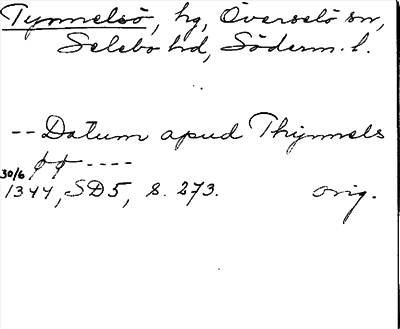 Tynnelsö, hg, Överselö sn,
Selebo hd, Söderm. l.
-- Datum apud Thynnels
øø ----
30/6
1344, SD5, s. 273. orig.